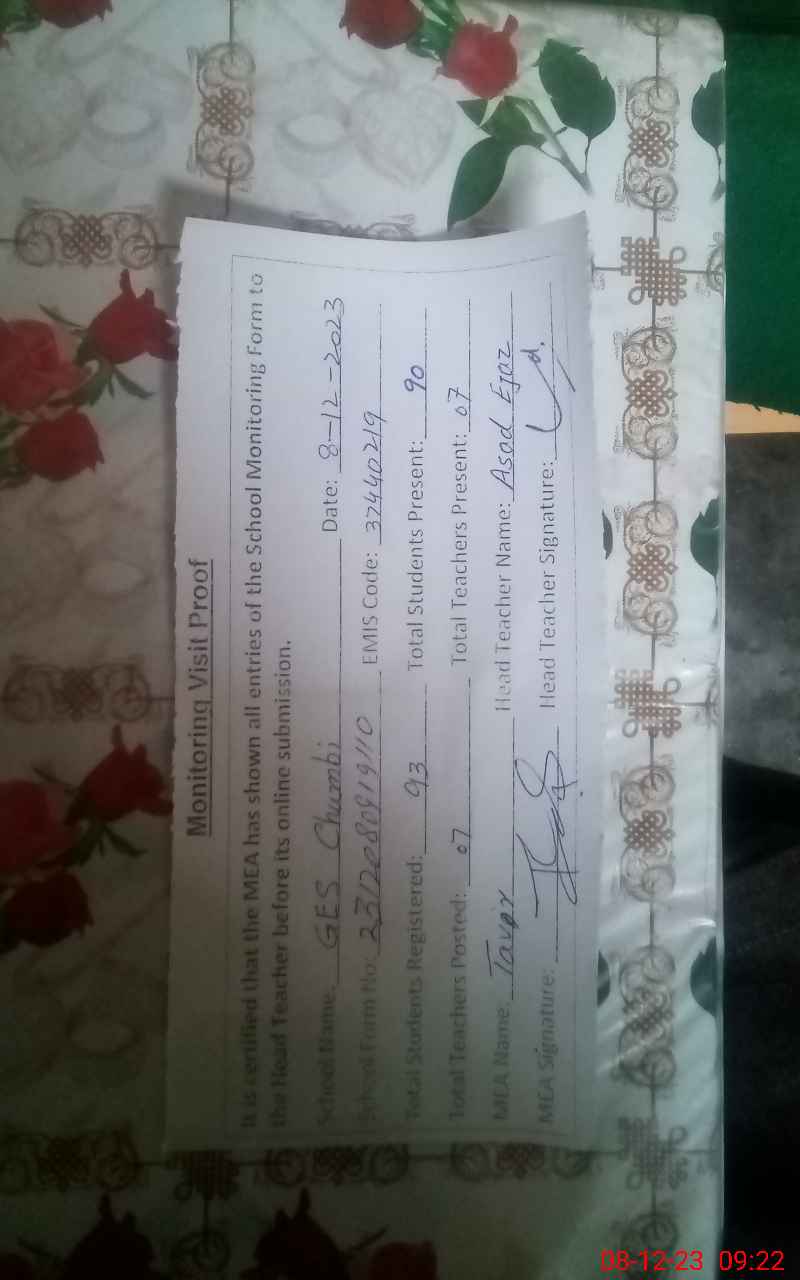 Monitoring Visit Proof
It is certified that the MEA has shown all entries of the School Monitoring Form to
the Head Teacher before its online submission.
School Name: GES Chumbi Date: 8-12-2023
School Form No: 2312080919110 EMIS Code: 37440219
Total Students Registered: 93 Total Students Present: 90
Total Teachers Posted: 07 Total Teachers Present: 07
MEA Name: Head Teacher Name: Asad Ejaz
MEA Signature: Head Teacher Signature:
08-12-23 09:22